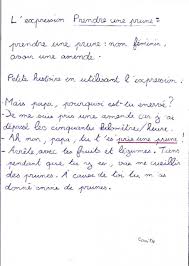 L'expression Prendre une prune =
prendre une prune : nom féminin,
avoir une amende.
Petite histoire en utilisant l'expression :
Mais papa, pourquoi es-tu énervé ?
- Je me suis pris une amende car j'ai
dépassé les cinquante kilomètres/heure.
- Ah mon, papa, tu t'es pris une prune !
- Arrête avec tes fruits et légumes. Tiens
pendant que tu y es, vas me cueillir
des prunes. À cause de toi tu m'as
donné envie de prunes.